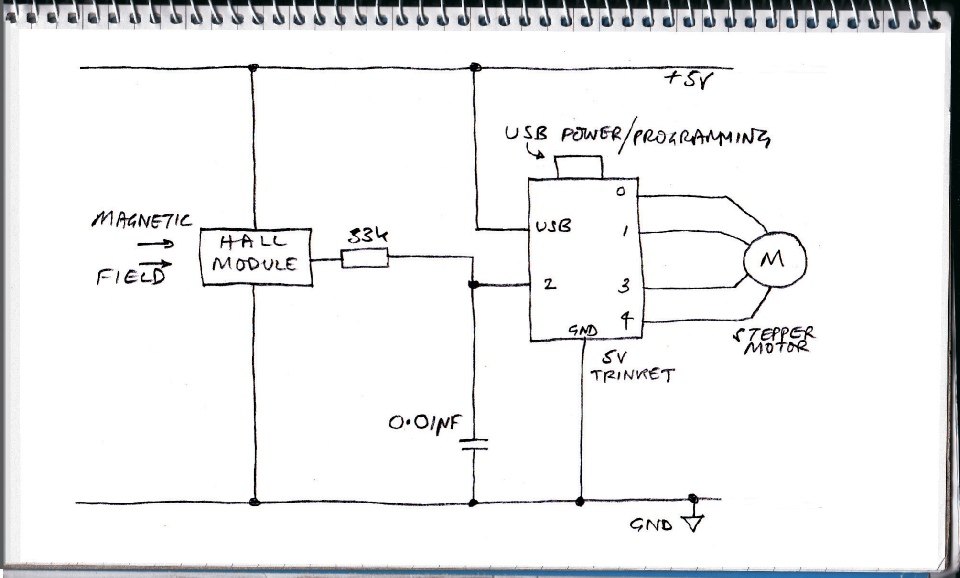 +5V
USB POWER/PROGRAMMING
0
MAGNETIC
FIELD
HALL
MODULE
33k
USB
1
2
3
4
GND
M
STEPPER
MOTOR
5V
TRINKET
0.01µF
GND